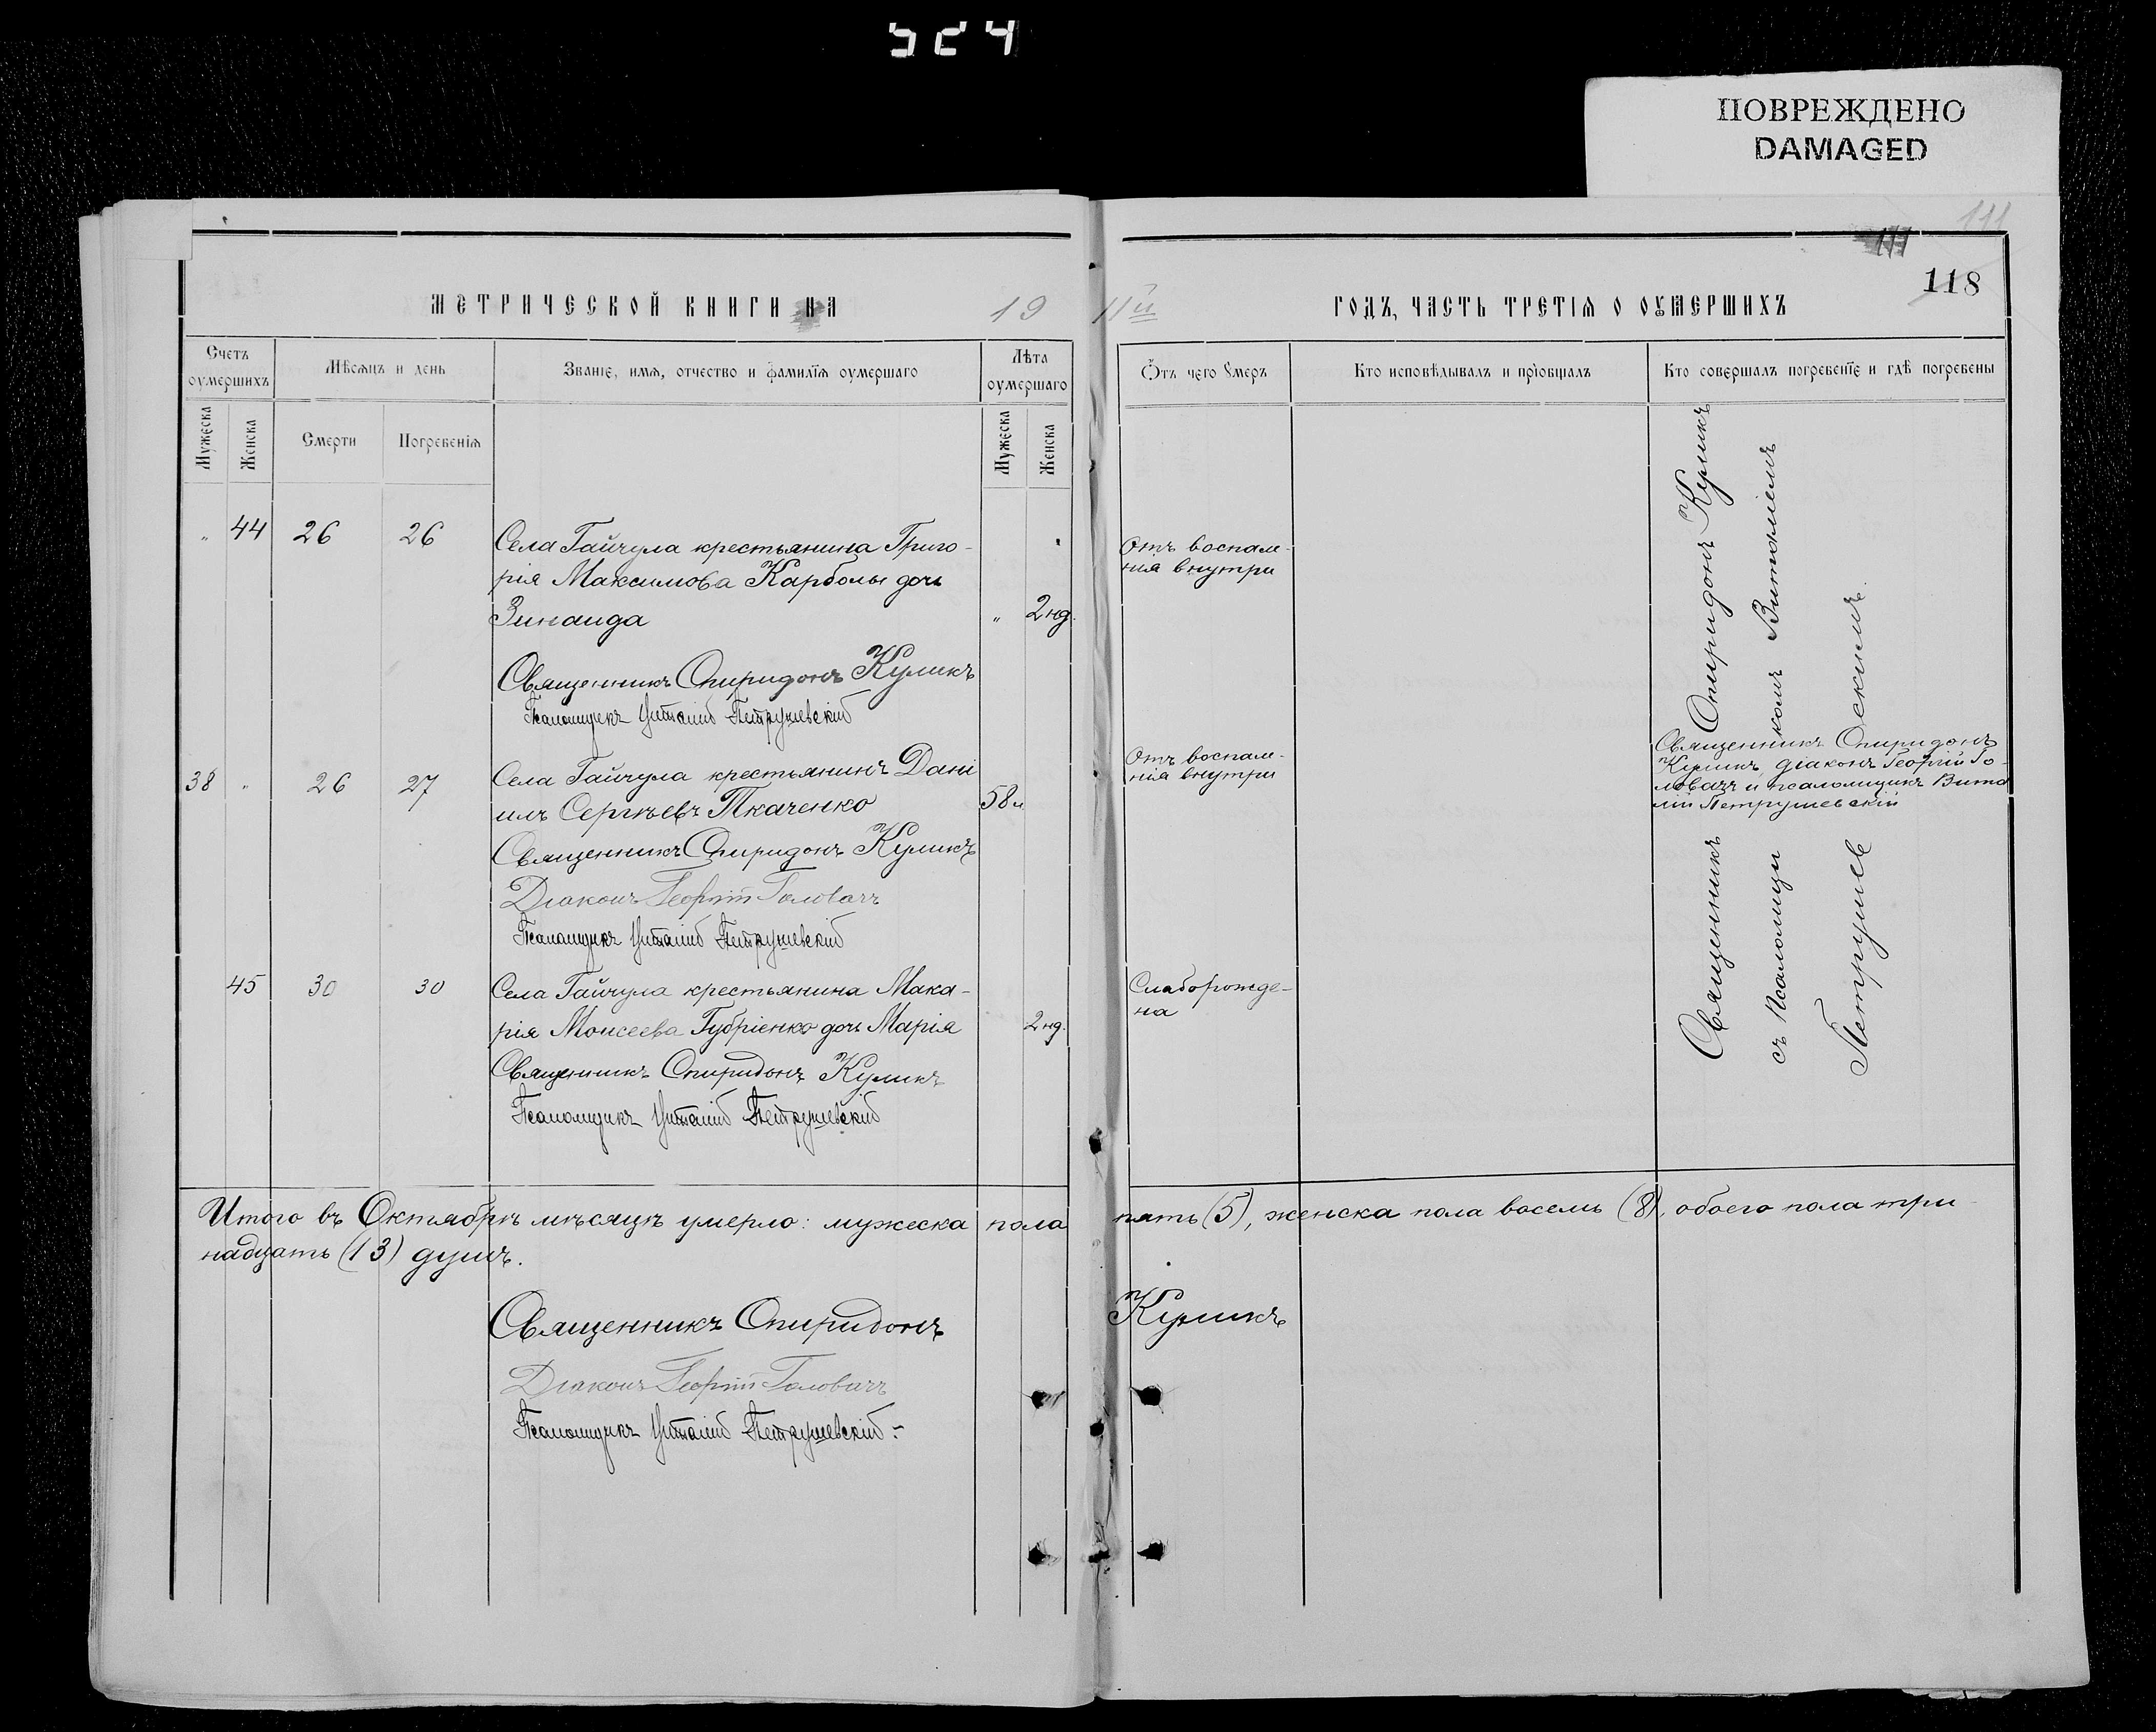 524
ПОВРЕЖДЕНО
DAMAGED
111
117
118
МЕТРИЧЕСКОЙ КНИГИ НА 19 11й ГОДЪ, ЧАСТЬ ТРЕТІЯ О ОУМЕРШИХЪ
Счетъ оумершихъ
Мѣсяцъ и день
Званіе, имя, отчество и фамилія оумершаго
Лѣта оумершаго
Ѿтъ чего Умеръ
Кто исповѣдывалъ и пріобщалъ
Кто совершалъ погребеніе и гдѣ погребены
Мужеска
Женска
Смерти
Погребенія
Мужеска
Женска
" 44 26 26 Села Гайчула крестьянина Григо-
рія Максимова Карболы дочь
Зинаида " 2 нд.
Отъ воспале-
нія внутри
Священникъ Спиридонъ Куликъ
Псаломщикъ Виталій Петрушевскій
38 " 26 27 Села Гайчула крестьянинъ Дані
илъ Сергѣевъ Ткаченко 58 л
Отъ воспале-
нія внутри
Священникъ Спиридонъ
Куликъ, діаконъ Георгій Го-
ловачъ и псаломщикъ Вита
лій Петрушевскій
Священникъ Спиридонъ Куликъ
Діаконъ Георгій Головачъ
Псаломщикъ Виталій Петрушевскій
45 30 30 Села Гайчула крестьянина Мака-
рія Моисеева Губріенко дочь Марія 2 нд.
Слаборожде-
на
Священникъ Спиридонъ Куликъ
Псаломщикъ Виталій Петрушевскій
Священникъ Спиридонъ Куликъ
съ Псаломщикомъ Виталіемъ
Петрушевскимъ.
Итого въ Октябрѣ мѣсяцѣ умерло: мужеска пола пять (5), женска пола восемь (8), обоего пола три-
надцать (13) душъ.
Священникъ Спиридонъ Куликъ
Діаконъ Георгій Головачъ
Псаломщикъ Виталій Петрушевскій.-